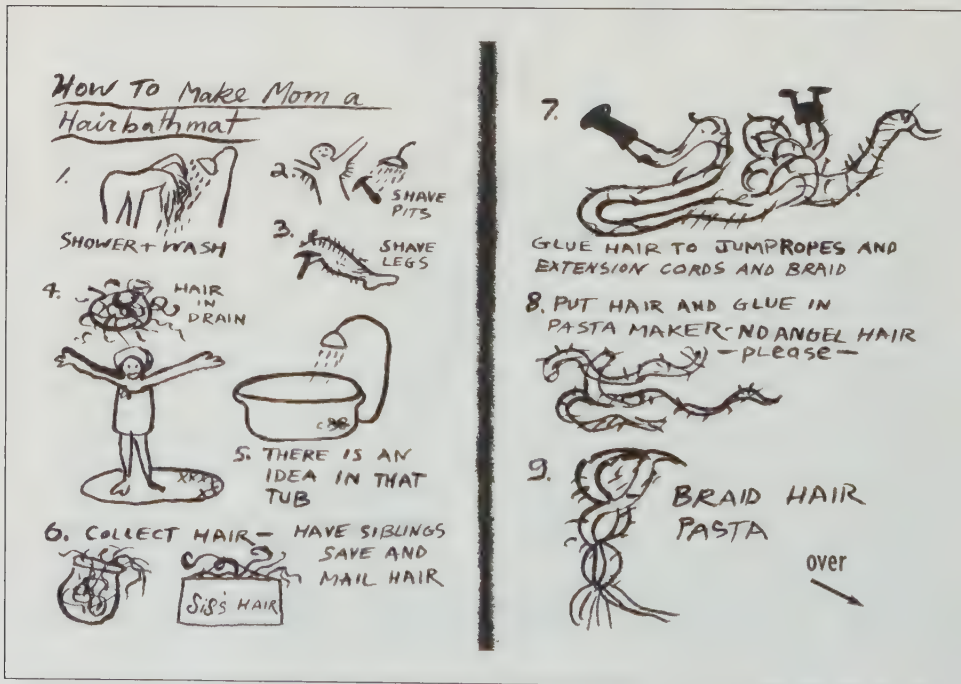 How To Make Mom a
Hairbathmat
1.
SHOWER + WASH
2.
SHAVE
PITS
3.
SHAVE
LEGS
4.
HAIR
IN
DRAIN
5. THERE IS AN
IDEA IN THAT
TUB
6. COLLECT HAIR – HAVE SIBLINGS
SAVE AND
MAIL HAIR
SiS's HAIR
7.
GLUE HAIR TO JUMPROPES AND
EXTENSION CORDS AND BRAID
8. PUT HAIR AND GLUE IN
PASTA MAKER – NO ANGEL HAIR
– please –
9.
BRAID HAIR
PASTA
over